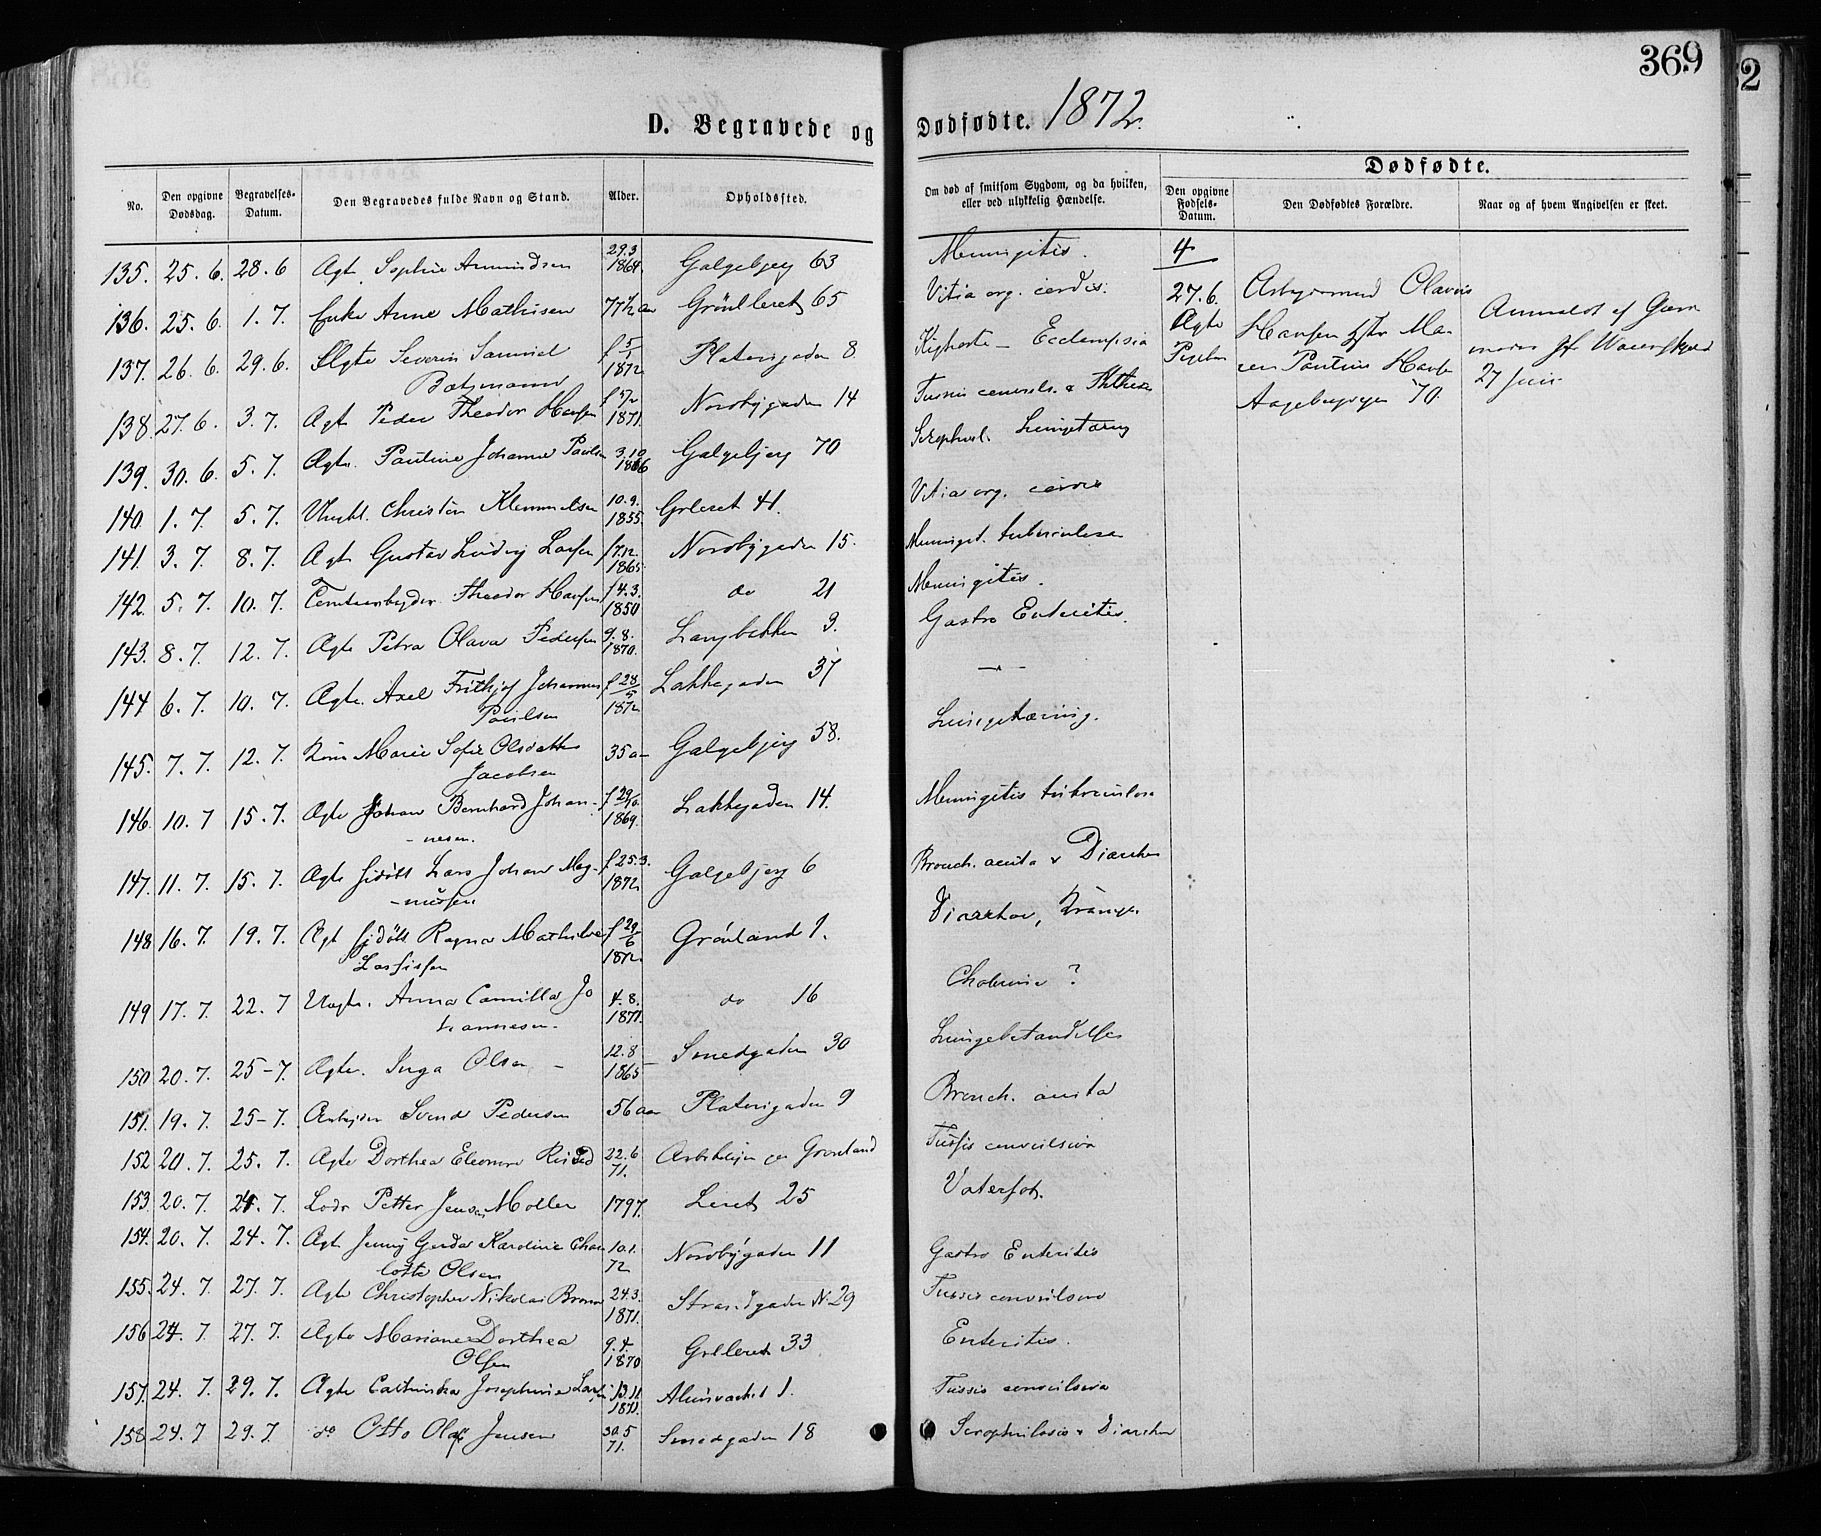 369
D. Begravede og Dødfødte. 1872.
Dødfødte.
No.
Den opgivne Dødsdag.
Begravelses-Datum.
Den Begravedes fulde Navn og Stand.
Alder.
Opholdssted.
Om død af smitsom Sygdom, og da hvilken, eller ved ulykkelig Hændelse.
Den opgivne Fødsels-Datum.
Den Dødfødtes Forældre.
Naar og af hvem Angivelsen er skeet.
135. 25. 6. 28. 6 Ægt. Sophie Amundsen 29.3 1864 Galgebjerg 63 Meningitis. 4
136. 25. 6. 1. 7. Enke Anne Mathisen 77½ aar Grönlleret 65 Vitia org. cordis. 27. 6. Arbeidsmand Olavus
Ægte Hansen Hstr Ma- Anmeldt af Gjor-
137. 26. 6. 29. 6. Ægte Severin Samuel f 5/1 1872 Platousgaden 8 Kighoste - Ecclampsia Pigebn
Botzmann
Pauline Hansen 27 Juni
138. 27. 6. 3. 7. Ægt. Peder Theodor Hansen 1871. Nordbygaden 14 Tussis convuls. & Phthisis 70.
139. 30. 6. 5. 7. Ægte. Pauline Johanne Paulsen 3.10 1866 Galgebjerg 70 Scrophul. Lungetæring
140. 1. 7. 5. 7. Christen Klemmetsen 10.9. 1855 Grleret 41. Vitia org. cordis
141. 3. 7. 8. 7. Ægt. Gustav Ludvig Larsen f 7.12. 1865 Nordbygaden 15. Meningit. tuberculosa
142. 5. 7. 10. 7. Theodor Hansen f 4.3. 1850 do 21 Meningitis.
143. 8. 7. 12. 7. Ægte Petra Olava Pedersen 9. 8. 1870. Langbakken 3. Gastro Enteritis.
144 6. 7. 10. 7. Ægte. Axel Frithjof Johannes f 28/5 1872 Lakkegaden 37 — " —
Paulsen
145. 7. 7. 12. 7. Kone Marie Sofie Olsdatter 35 a— Galgebjerg 58. Lungetæring.
Jacobsen
146. 10. 7 15. 7. Ægte Johan Bernhard Johan- 1869. Lakkegaden 14. Meningitis tuberculosa
-nesen.
147. 11. 7. 15. 7. Ægte hjdöbt Lars Johan Mag- f 25.3. 1872 Galgebjerg 6 Bronch. acuta & Diarrhoe
-nussen
148 16. 7. 19. 7. Ægt hjdöbt Ragna Mathilde f 29/6 1872 Grönland 1. Diarrhoe, Krampe
149 17. 7. 22. 7 Uægte. Anna Camilla Jo 4.8. 1871. do 16 Cholerine ?
hannesen.
150 20. 7. 25-7. Ægte. Inga Olsen - 12.8 1865 Smedgaden 30 Lungebetændelse
151. 19. 7. 25-7. Arbeider Svend Pedersen 56 aar Platousgaden 9 Bronch. acuta
152 20. 7. 25. 7. Ægte Dorthea Eleonore 22.6 71. Grønland Tussis convulsiva
153 20. 7. 24. 7. Petter Jensen Moller 1797. Leret 25 Vatersot.
154. 20. 7. 24. 7. Ægte Jenny Gerda Karoline Char 10.1. 72 Nordbygaden 11 Gastro Enteritis
lotte Olsen
155. 24. 7. 27. 7. Ægte Christopher Nikolai Bruun 24.3. 1871. Strandgaden N. 29 Tussis convulsiva
156 24. 7. 27. 7. Ægte Mariane Dorthea 9.4. 1870 Grlleret 33 Enteritis.
Olsen
157. 24. 7. 29. 7. Ægte Cathinka Josephine Larsen 13.11 1871. Alunværket 1. Tussis convulsiva
158 24. 7 29. 7. do Otto Olaf Jensen 30.5 71. Smedgaden 18 Scrophulosis & Diarrhoe